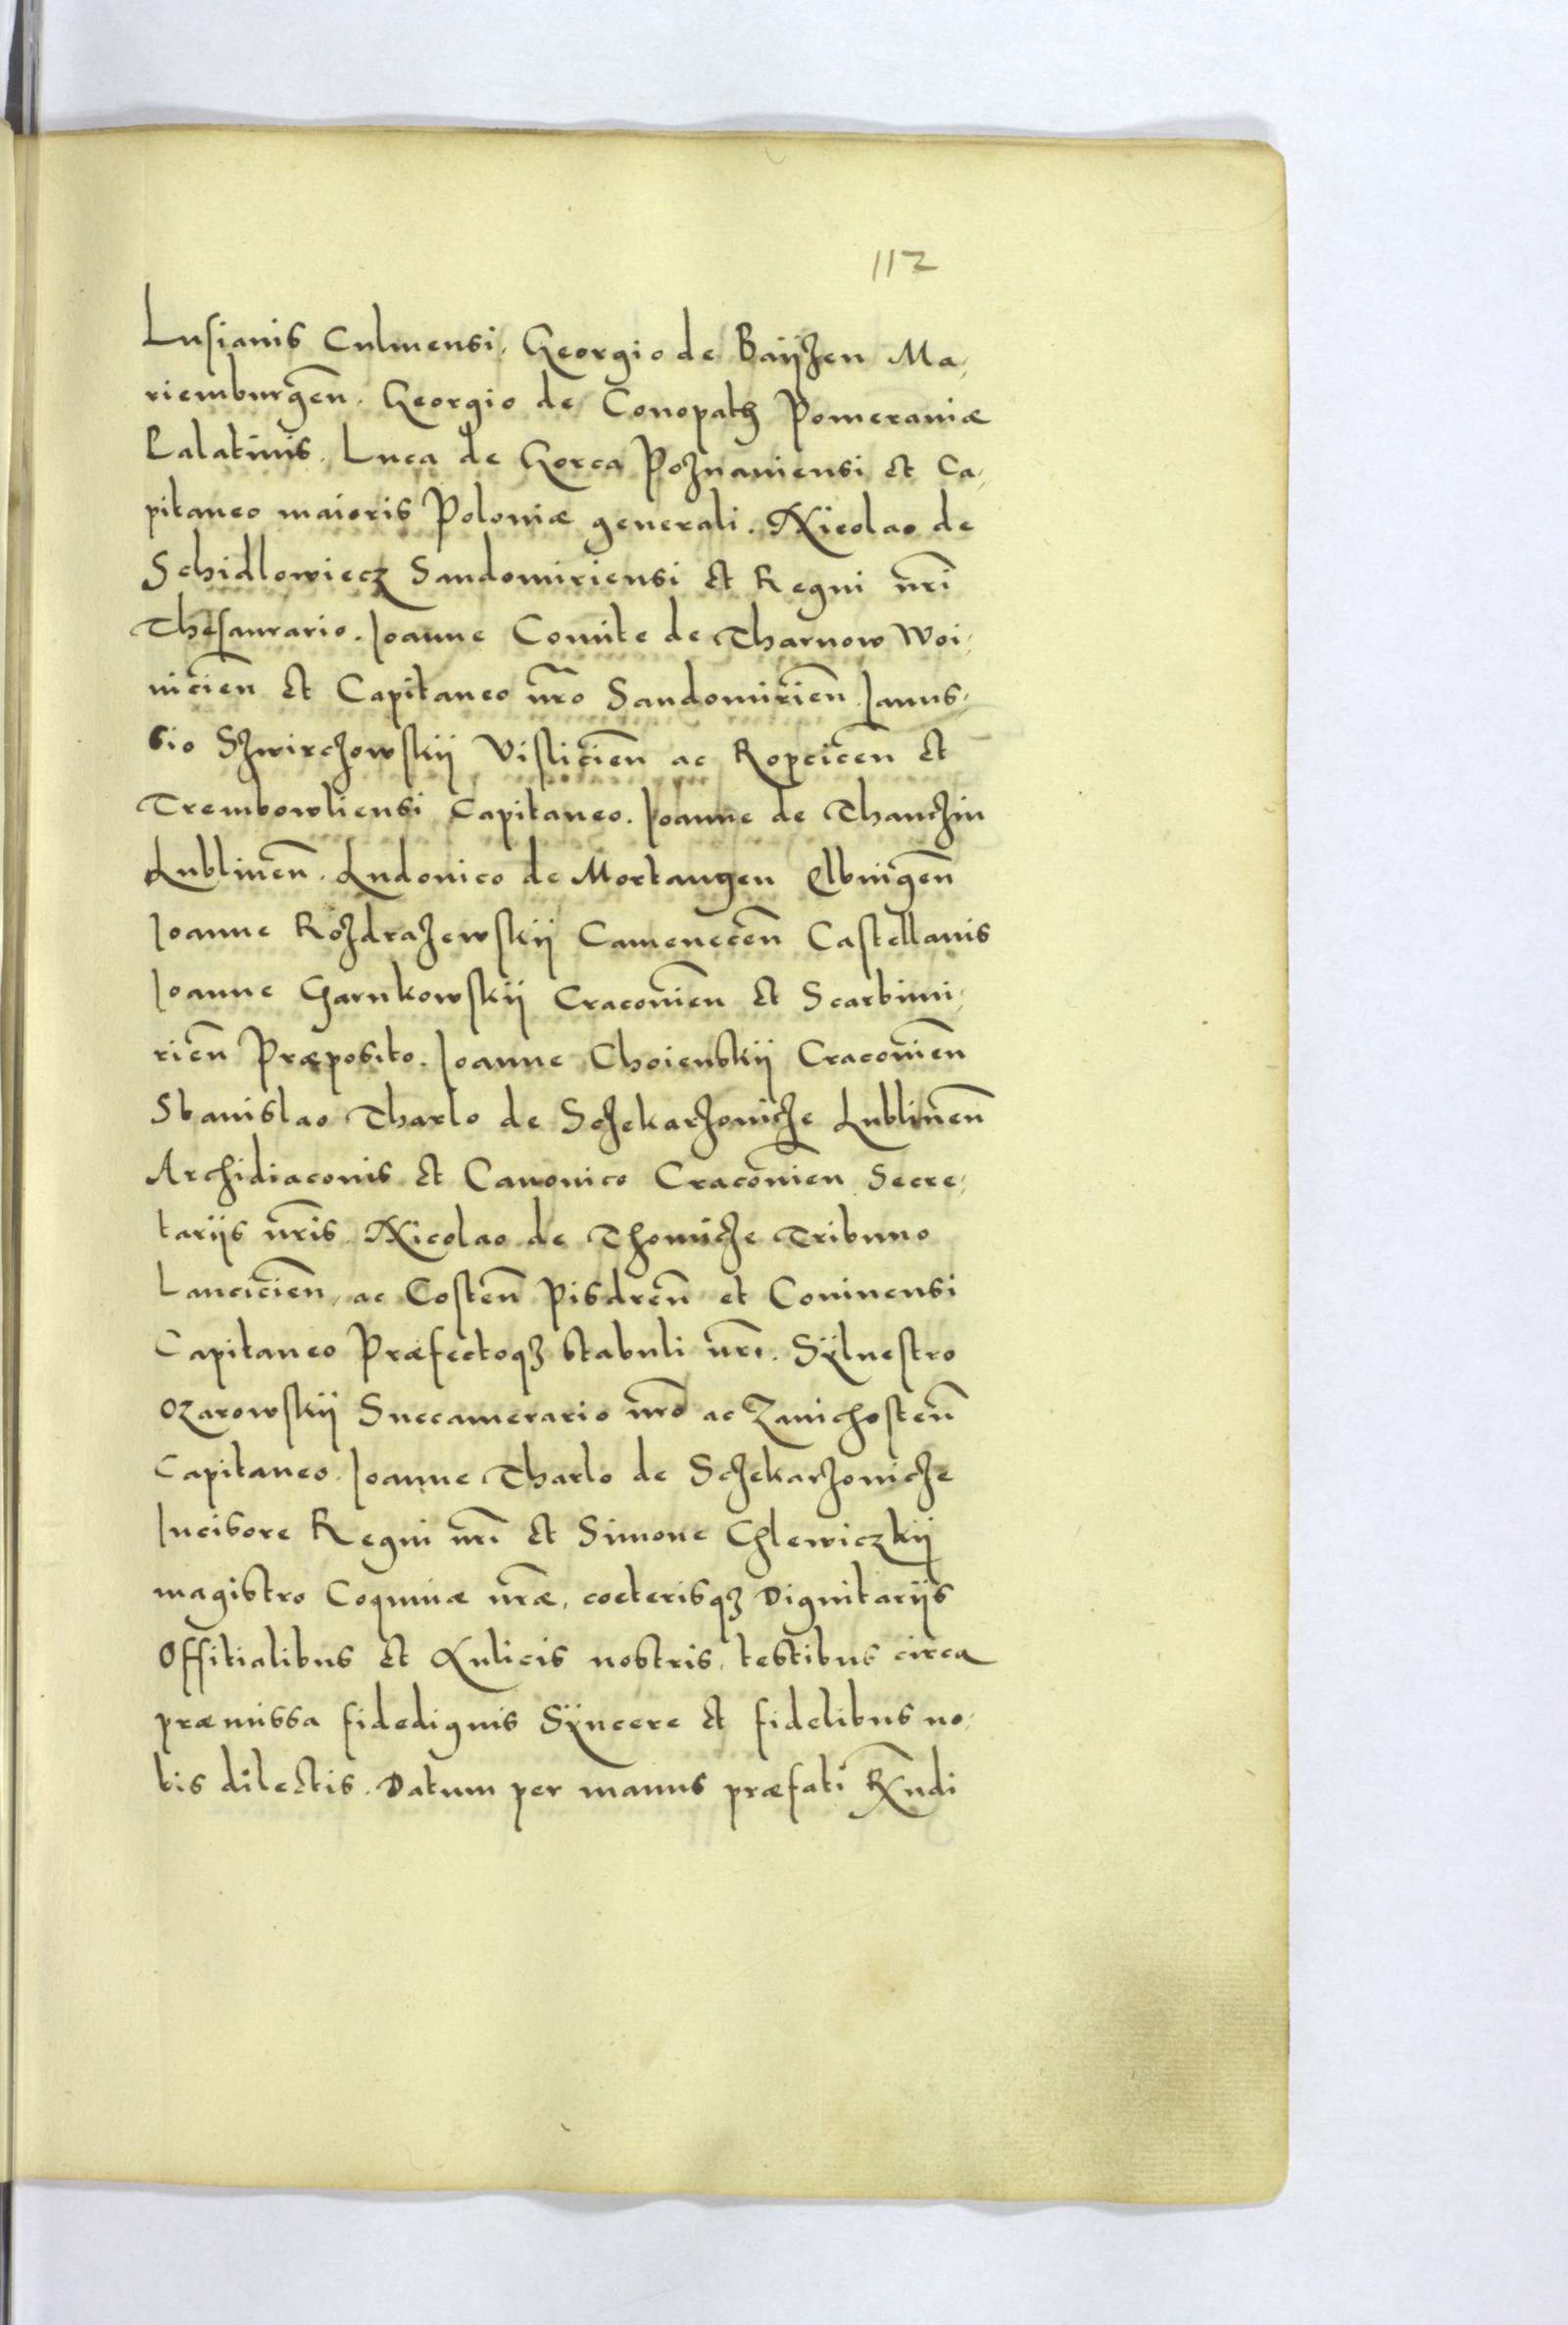 112
Lusianis Culmensi, Georgio de Baÿzen Ma,
riemburgeñ. Georgio de Conopath Pomeraniæ
Palatinis. Luca de Gorca Poznaniensi et Ca,
pitaneo maioris Poloniæ generali. Nicolao de
Schidlowiecz Sandomiriensi et Regni nr̃i
Thesaurario. Joanne Comite de Tharnow Woi,
nicieñ et Capitaneo nr̃o Sandomirieñ. Janus,
sio Szwirczowskÿ Visliciẽn ac Ropciceñ et
Trembowliensi Capitaneo. Joanne de Thanczin
Lublineñ. Ludovico de Mortangen Elbingeñ
Joanne Rozdrazewskÿ Cameneceñ Castellanis
Joanne Garnkowskÿ Cracovieñ et Scarbimi,
rieñ Præposito. Joanne Choienskÿ Cracovieñ
Stanislao Tharlo de Sczekarzovicze Lublineñ
Archidiaconis et Canonico Cracovieñ Secre,
tariis nr̃is. Nicolao de Thomicze Tribuno
Lancicieñ, ac Costeñ Pisdreñ et Coninensi
Capitaneo Præfectoqꝫ stabuli nr̃i. Sÿlvestro
Ozarowskÿ Succamerario nr̃o ac Zavichosteñ
Capitaneo. Joanne Tharlo de Sczekarzovicze
Incisore Regni nr̃i et Simone Chlewiczkÿ
magistro Coquinæ nr̃æ, coeterisqꝫ Dignitariis
Offitialibus et Aulicis nostris, testibus circa
præmissa fidedignis Sÿncere et fidelibus no,
bis dilectis. Datum per manus præfati Rñdi